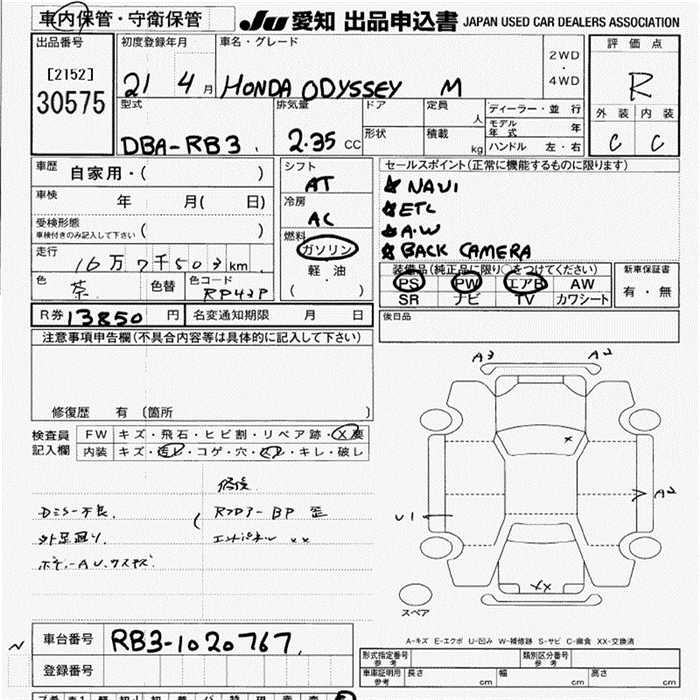 車内保管・守衛保管
JU 愛知 出品申込書 JAPAN USED CAR DEALERS ASSOCIATION
出品番号
[2152]
30575
初度登録年月
21 4月
車名・グレード
HONDA ODYSSEY M
2WD
・
4WD
評価点
R
外装 内装
C C
型式
DBA-RB3
排気量
2.35 CC
ドア
形状
定員
人
積載
kg
ディーラー・並行
モデル年式 年
ハンドル 左・右
車歴 自家用・( )
車検 年 月( 日)
受検形態
車検付きのみ記入して下さい ( )
走行 16万7千503km
色 茶 色替 色コード RP42P
シフト
AT
冷房
AC
燃料
ガソリン
軽油
( )
セールスポイント(正常に機能するものに限ります)
☆ NAVI
☆ ETC
☆ A・W
☆ BACK CAMERA
装備品(純正品に限り○をつけてください)
PS PW エアB AW
SR ナビ TV カワシート
新車保証書
有・無
R券 13850 円 名変通知期限 月 日
後日品
注意事項申告欄(不具合内容等は具体的に記入して下さい)
修復歴 有 (箇所 )
検査員
記入欄
FW キズ・飛石・ヒビ割・リペア跡・X要
内装 キズ・汚レ・コゲ・穴・スレ・キレ・破レ
修復
外足廻り
A3 A2
x
A2
U1
XX
スペア
A-キズ E-エクボ U-凹み W-補修跡 S-サビ C-腐食 XX-交換済
車台番号 RB3-1020767
登録番号
形式指定番号 参考
類別区分番号 参考
車庫証明用 参考 長さ cm 幅 cm 高さ cm